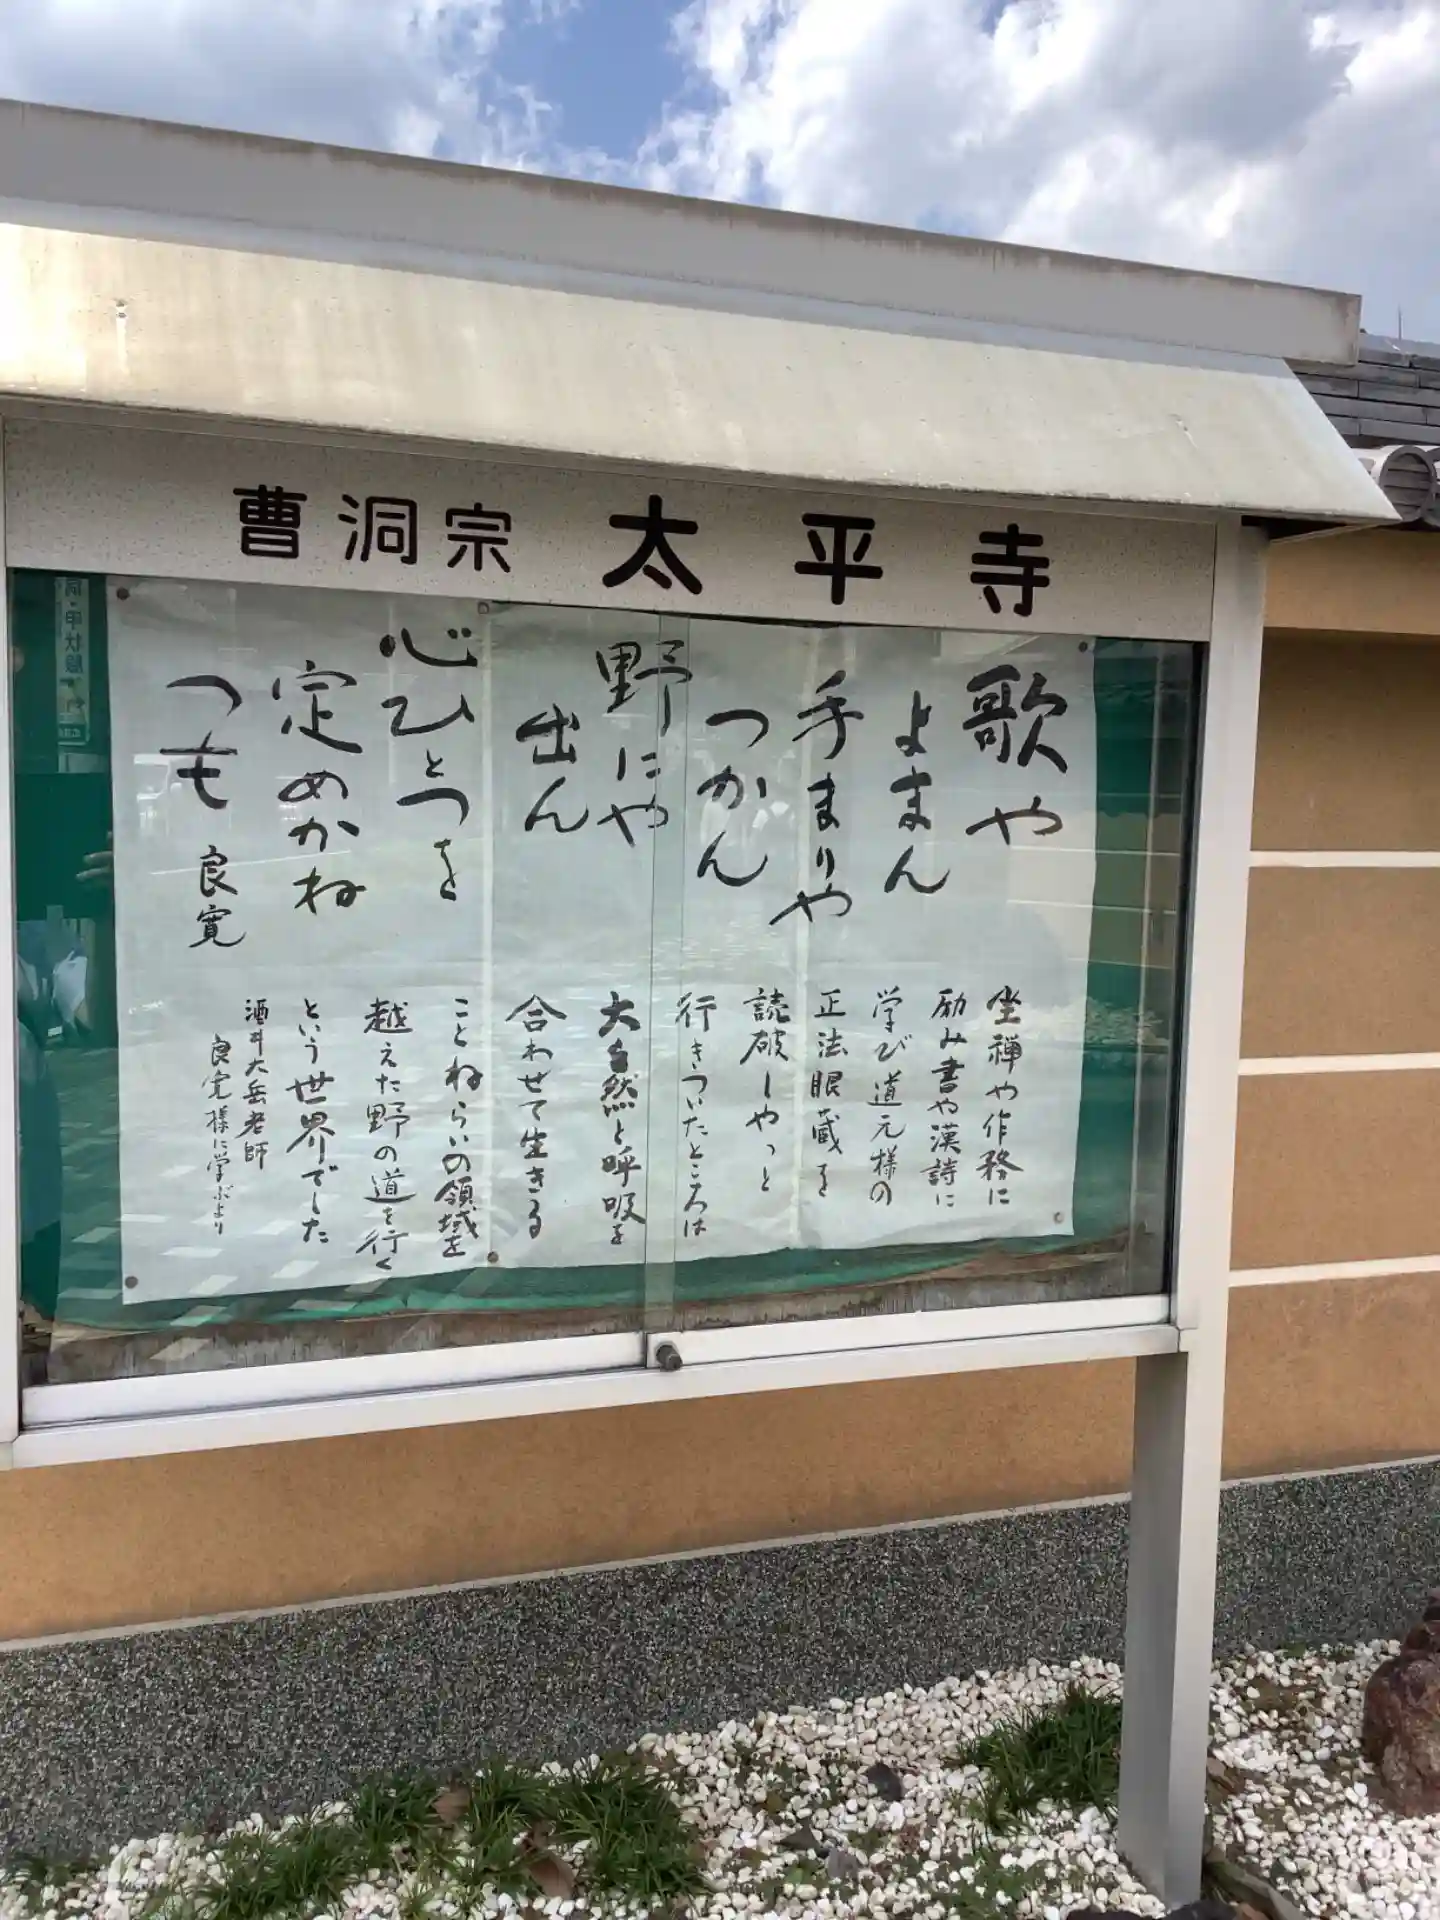 曹洞宗 太平寺
歌や
よまん
手まりや
つかん
野にや
出ん
心ひとつを
定めかね
つも
良寛
坐禅や作務に
励み書や漢詩に
学び道元様の
正法眼蔵を
読破しやっと
行きついたところは
大自然と呼吸を
合わせて生きる
ことねらいの領域を
越えた野の道を行く
という世界でした
酒井大岳老師
良寛様に学ぶより